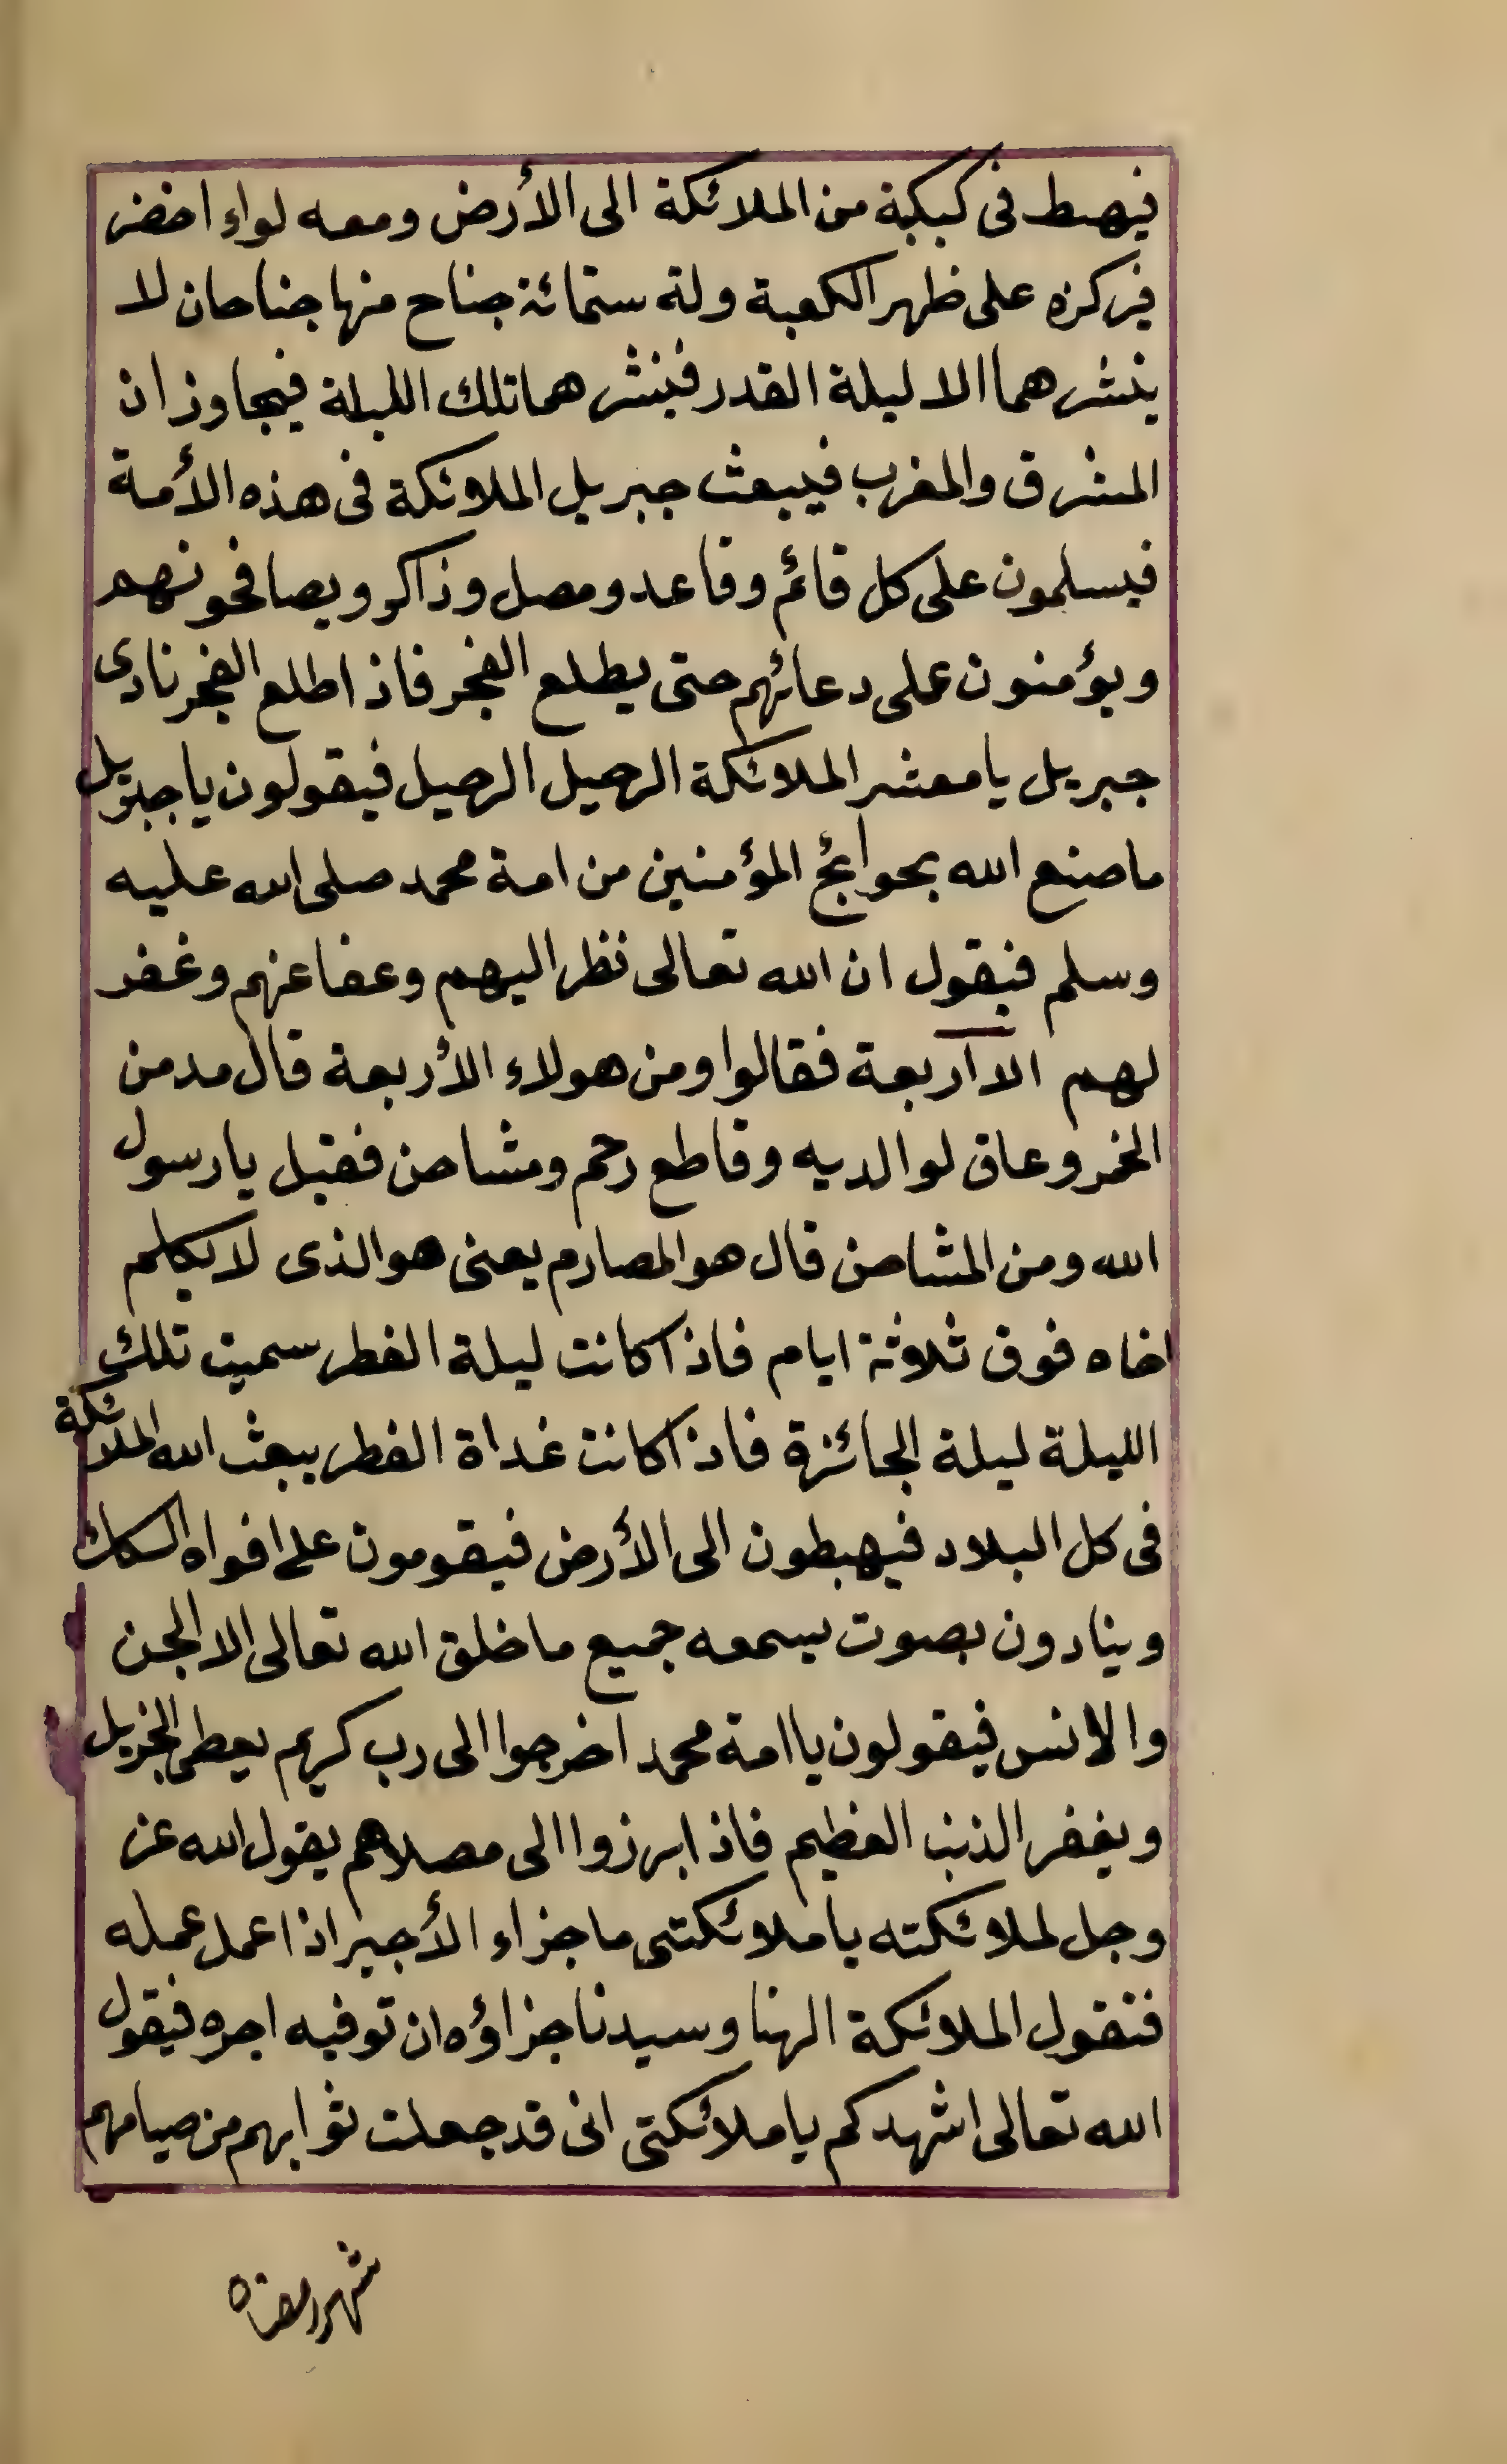 فيهبط فى كبكبة من الملائكة الى الأرض ومعه لواء اخضر
فيركزه على ظهر الكعبة ولة ستمائة جناح منها جناحان لا
ينشرهما الا ليلة القدر فينشرهما تلك الليلة فيجاوزان
المشرق والمغرب فيبعث جبريل الملائكة فى هذه الأمة
فيسلمون على كل قائم وقاعد ومصل وذاكر ويصافحونهم
ويؤمنون على دعائهم حتى يطلع الفجر فاذا طلع الفجر نادى
جبريل يا معشر الملائكة الرحيل الرحيل فيقولون يا جبريل
ما صنع الله بحوائج المؤمنين من امة محمد صلى الله عليه
وسلم فيقول ان الله تعالى نظر اليهم وعفا عنهم وغفر
لهم الا اربعة فقالوا ومن هولاء الأربعة قال مدمن
الخمر وعاق لوالديه وقاطع رحم ومشاحن فقيل يا رسول
الله ومن المشاحن قال هو المصارم يعنى هو الذى لا يكلم
اخاه فوق ثلاثة ايام فاذا كانت ليلة الفطر سميت تلك
الليلة ليلة الجائزة فاذا كانت غداة الفطر يبعث الله الملائكة
فى كل البلاد فيهبطون الى الأرض فيقومون على افواه السكك
وينادون بصوت يسمعه جميع ما خلق الله تعالى الا الجن
والانس فيقولون يا امة محمد اخرجوا الى رب كريم يعطى الجزيل
ويغفر الذنب العظيم فاذا برزوا الى مصلاهم يقول الله عز
وجل لملائكته يا ملائكتى ما جزاء الأجير اذا عمل عمله
فتقول الملائكة الهنا وسيدنا جزاؤه ان توفيه اجره فيقول
الله تعالى اشهدكم يا ملائكتى انى قد جعلت ثوابهم من صيامهم
شهر رمضان